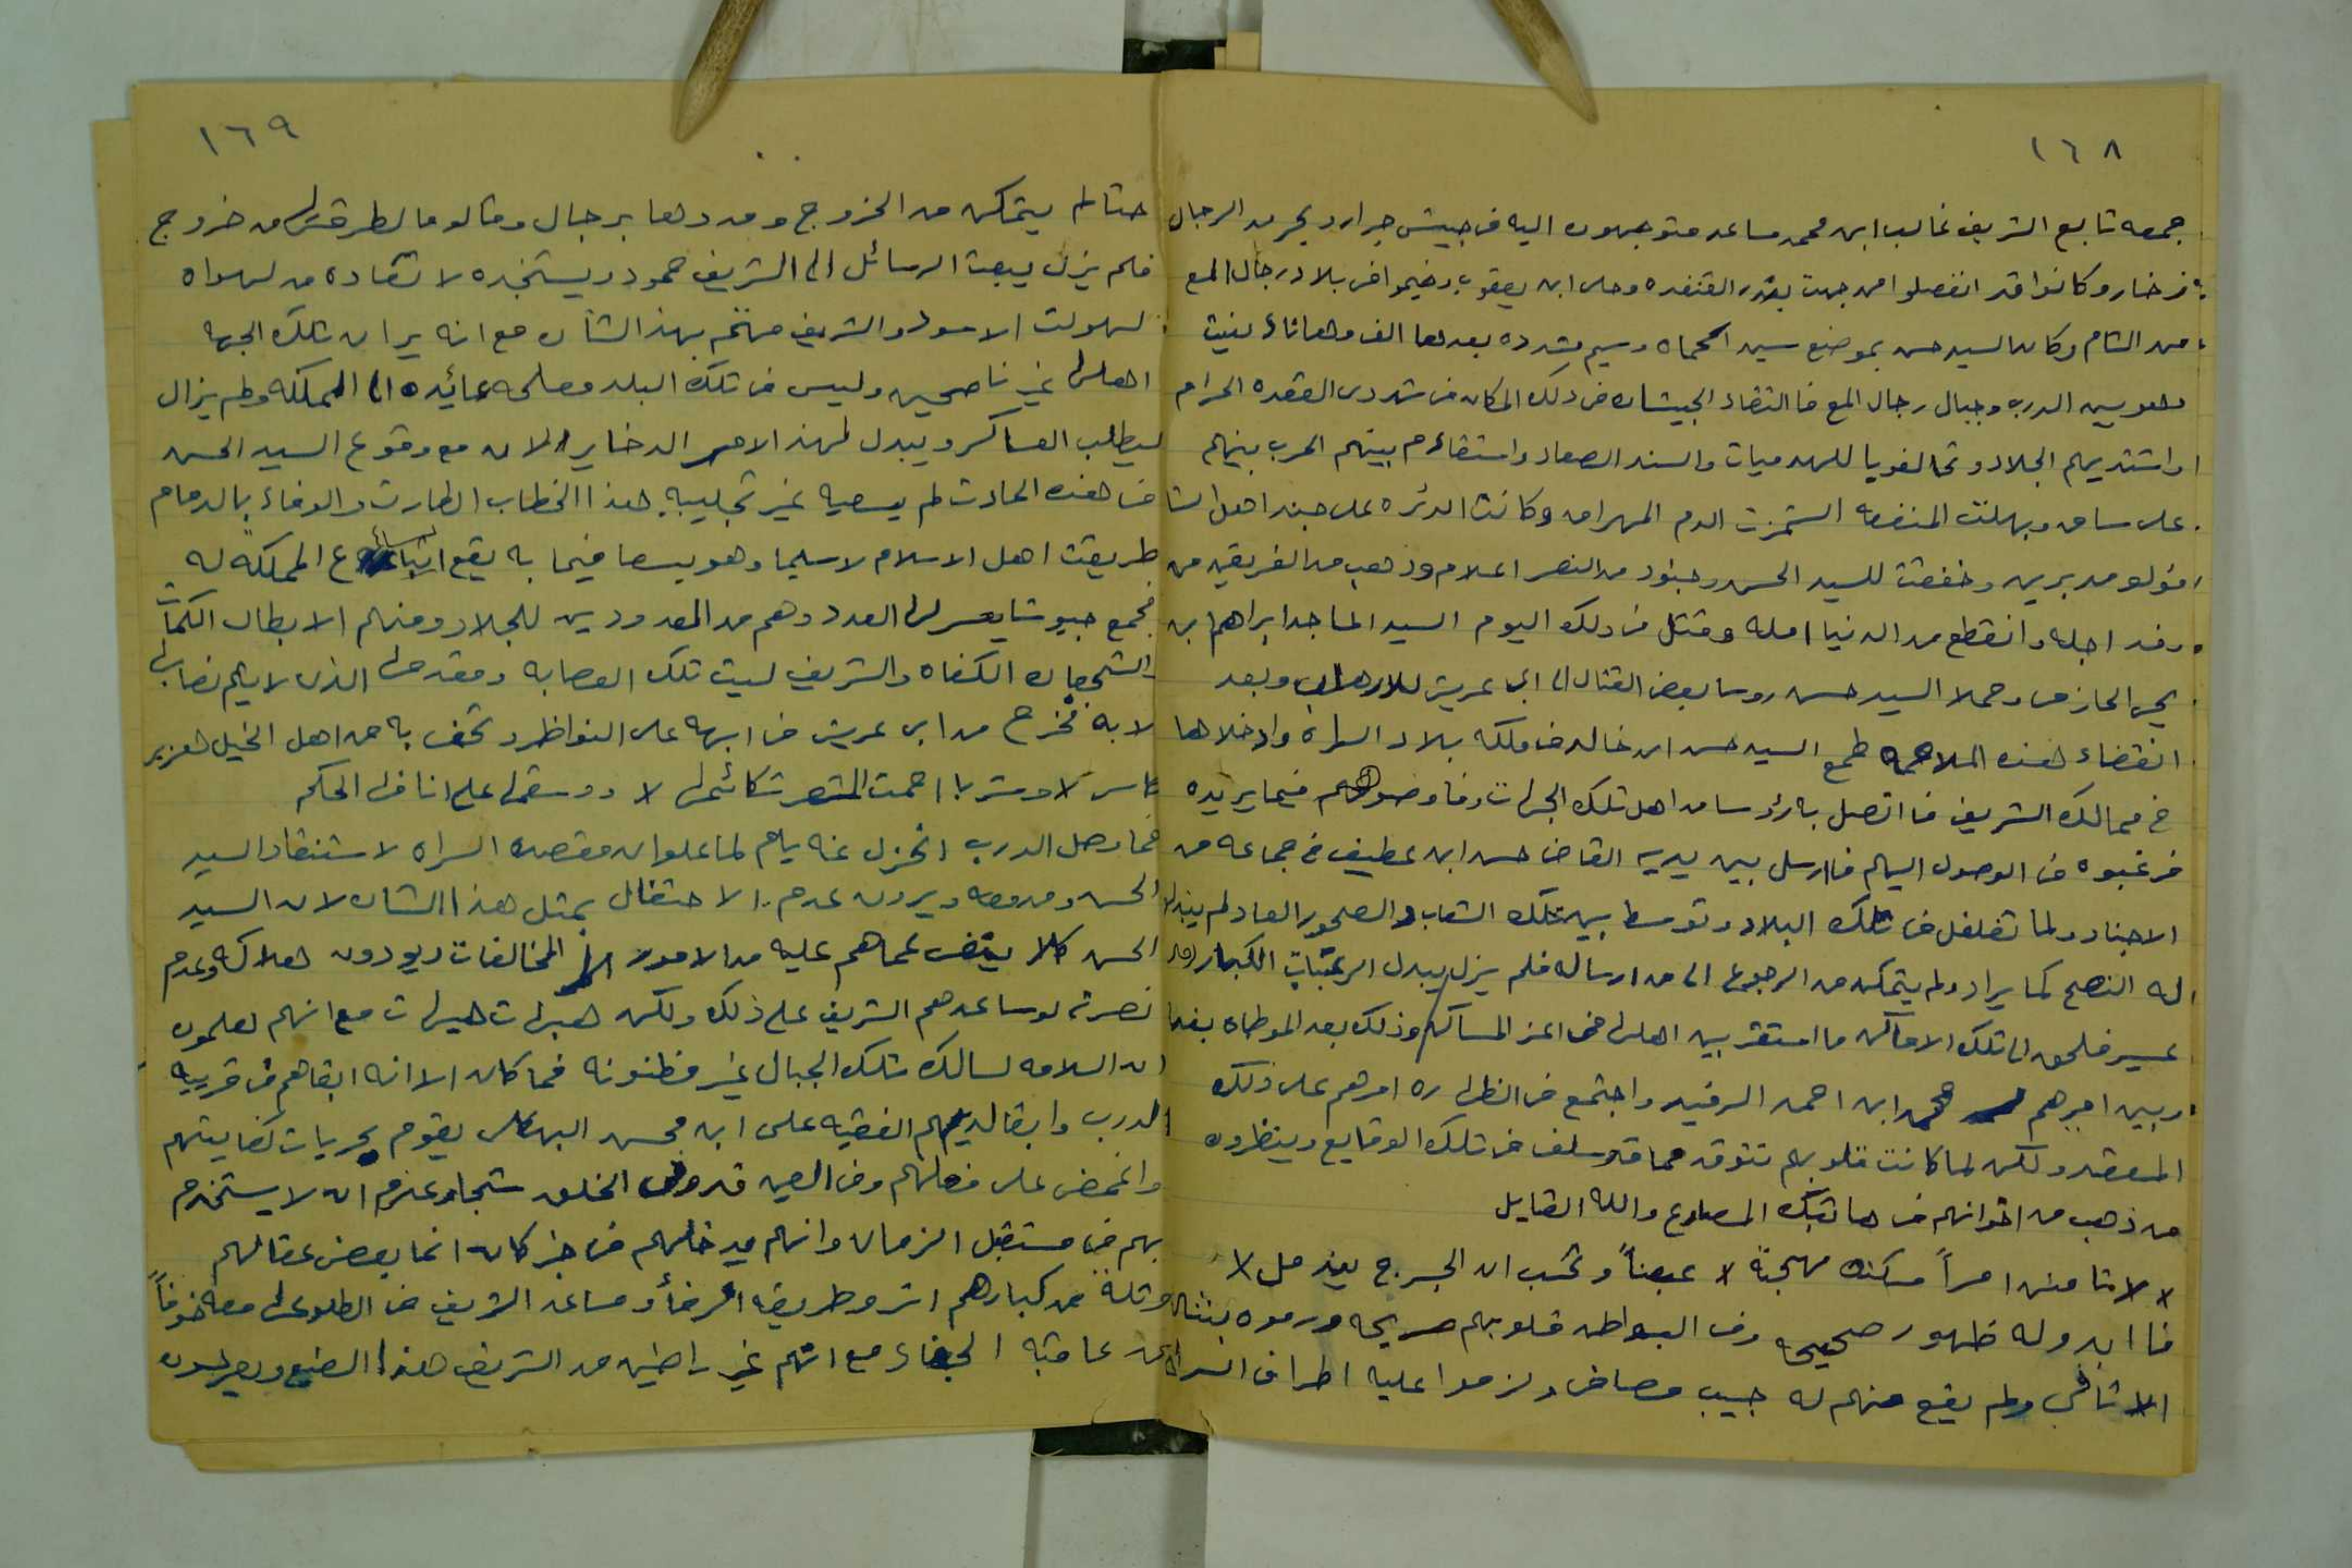 ١٦٨
جمعه تابع الشريف غالب ابن محمد مساعد متوجهون اليه في جيش جرار وبحر من الرجال
زخار وكانوا قد انفصلوا من جهت بندر القنفده وحلى ابن يعقوب وخيموا في بلاد رجال المع
من الشام وكان السيد حسن بموضع سيد
وهو بين الدرب وجبال رجال المع فالتقاء الجيشان في ذلك المكان في شهر دى القعده الحرام
واشتد بهم الجلاد وتحالفو يا للهدميات والسند الصعاد واستقاءم بينهم الحرب بينهم
على ساق وبهلت المنفعه الدم المهراق وكانت الدئره على جند اهل الشا
فولو مدبرين وخفقت للسيد الحسن وجنود من النصر اعلام وذهب من الفريقين من
دف اجله وانقطع من الدنيا امله وقتل في ذلك اليوم السيد الماجد ابراهم ابن
يحي الحازمى وحملا السيد حسن روسا بعض القتال الى ابى عريش للارهاب وبعد
انقضاء هذه الملاحمه طمع السيد حسن ابن خالد في ملكه بلاد السراة وادخلاها
في ممالك الشريف فا اتصل بارؤسا من اهل تلك الجهات وفاوضوهم فيما يريده
فرغبوه في الوصول اليهم فاارسل بين يديه القاضى حسن ابن عطيف في جماعه من
الاجناد ولما تغلغل في تلك البلاد وتوسط بين تلك الشعاب والصخور الصادلم يبذلو
له النصح كما يراد ولم يتمكن من الرجوع الى من ارساله فلم يزل يبدل الرغبات الكبار
عسير فلحق الى تلك الاماكن ما استقر بين اهلها في اعز المساكن وذلك بعد الموطاه بفها
وبين اميرهم محمد ابن احمد الرفيد واجتمع في الظهاره امرهم على ذلك
المعقد ولكن لما كانت قلوبهم تتوقد مما قد سلف في تلك الوقايع وينظرون
من ذهب من اخوانهم في هاتيك المصارع والله القايل
لا لا تامنن امراً سكنت مهجتة لا عبصاً وتحسب ان الجرح يندمل لا
فا ابدو له ظهور صحيحه وفى البواطن قلوبهم جريحه ورموه بثالثة
الاثافي ولم يقع منهم له حبيب مصافى ولزموا عليه اطراف السراه
١٦٩
حتا لم يتمكن من الخروج ومددها برجال وقالو مالطرقتها من خروج
فلم يزل يبعث الرسائل الى الشريف حمود ويستنجده لانقاده من لهواه
لهولت الاسود والشريف مهتم بهذا الشأن مع انه يران تلك الجهه
اهلها غير ناصحين وليس في تلك البلد مصلحه عائيده الى المملكه ولم يزال
يطلب العساكر ويبدل لهذ الامر الدخاير الان مع وقوع السيد الحسن
في هذه الحادث لم يسعيه غير تجليبه هذا الخطاب الطارت والوفاء بالدمام
طريقت اهل الاسلام لاسيما وهو يسعا فيما به يقع اتساع المملكة له
فجمع جيوشا يعسرلها العدد وهم من المعدودين للجلاد ومنهم الابطال الكمات
الشجعان الكفاه والشريف ليت تلك العصابه ومقدمها الذى لايهم نصابها
لابه فخرج من ابى عريش في ابهه على النواظر وتحف به من اهل الخيل هزبر
كاسر لا ومتربا احمت المنصرت كائسها لا ووسقها على انا في الحكم
فما وصل الدرب انخزل عنه يام لما علوان مقصده السراه لاستنقاد السيد
الحسن ومن معه ويرون عدم الاحتفال بمثل هذا الشان لان السيد
الحسن كلا يغض عماهم عليه من الامور المخالفات ويودون هلاكه وعدم
نصرته لوساعدهم الشريف على ذلك ولكن هيهات هيهات مع انهم لعلمون
ان السلامه لسالك تلك الجبال غير مظنونه فما كان الا انه ابقاهم في قريه
الدرب وابقا لديهم الفقيه على ابن محسن البهكلى يقوم بجريات كفايتهم
واغمض على فعلهم وفى العين قدى وفى الخلق شجا وعزم ان لا يستخدم
بهم في مستقبل الزمان وانهم يدخلهم في خبر كان انما بعض عقالهم
وقلة من كبارهم اثرو طريقه الوفأ ومساعد الشريف في الطلوعها معه خوفاً
من عاقبة الجفاء مع انهم غير راضين من الشريف هذا الصنع ويعرفون